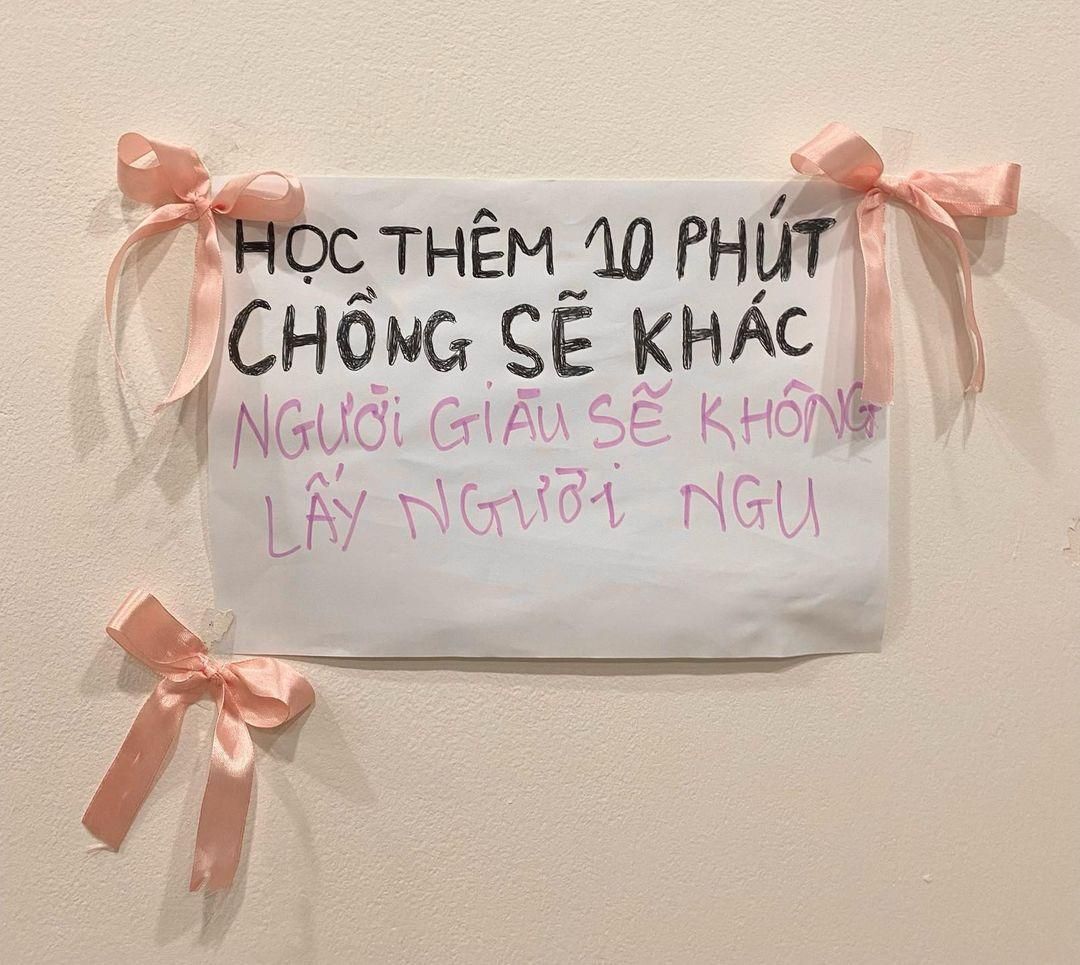 HỌC THÊM 10 PHÚT
CHỒNG SẼ KHÁC
NGƯỜI GIÀU SẼ KHÔNG
LẤY NGƯỜI NGU